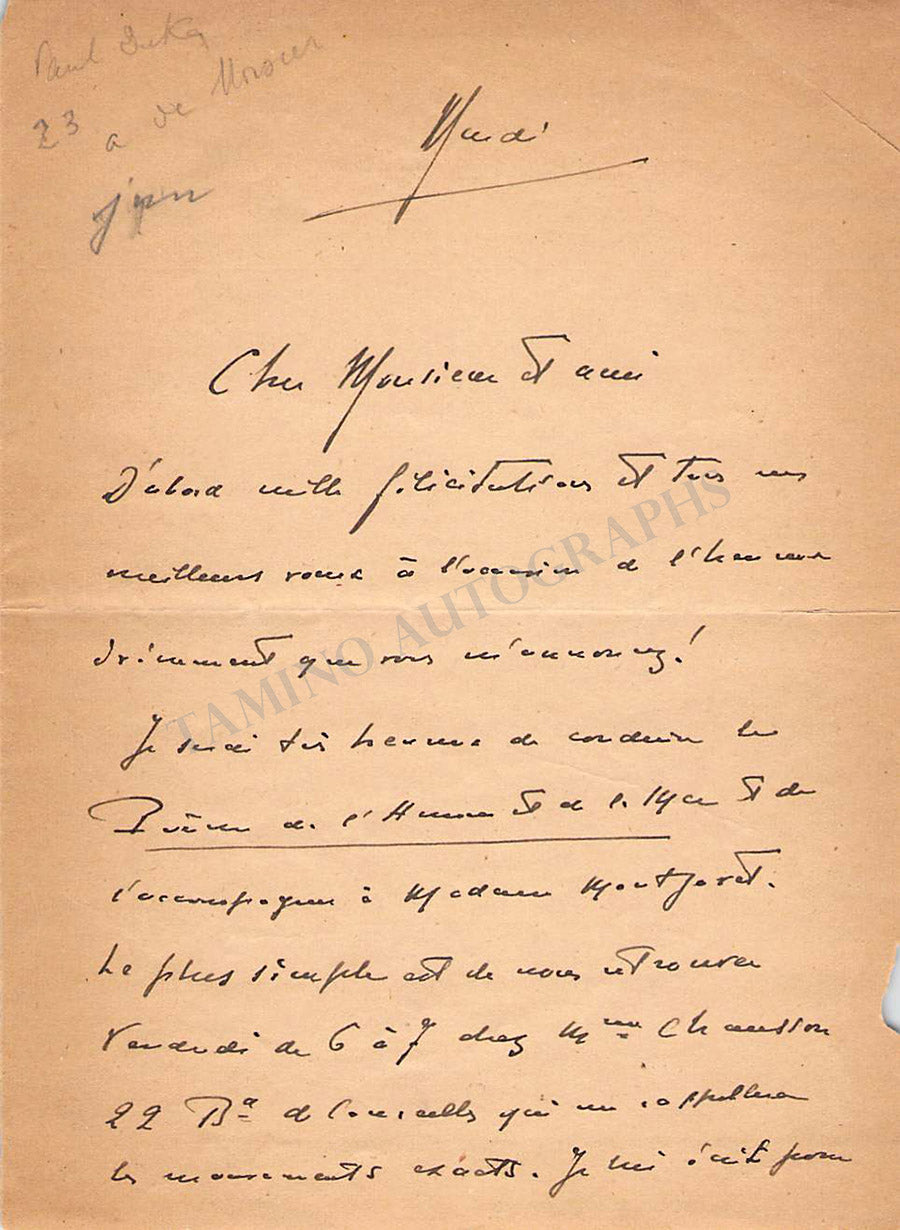 Paul Dukas
23 a de
Mardi
Cher Monsieur et ami
D'abord mille félicitations et tous mes
meilleurs vœux à l'occasion de l'heureux
évènement que vous m'annoncez!
Je serai très heureux de conduire le
Poème de l'Amour et de la Mer et de
l'accompagner à Madame Montjovet.
Le plus simple est de nous retrouver
Vendredi de 6 à 7 chez Mme Chausson
22 Bd de Courcelles qui me rappellera
les mouvements exacts. Je lui écrit pour
TAMINO AUTOGRAPHS